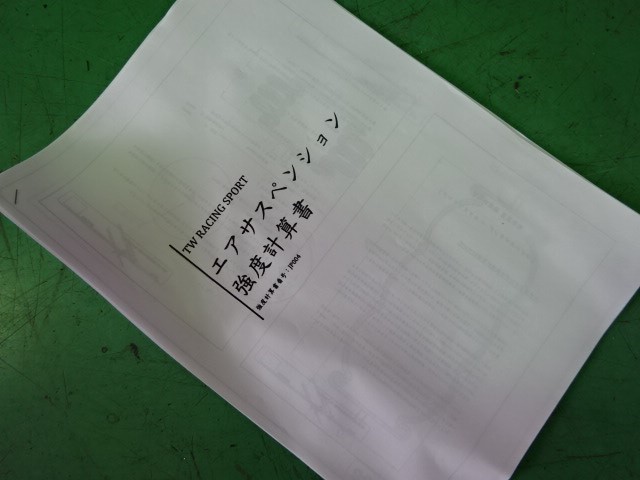 TW RACING SPORT
エアサスペンション
強度計算書
強度計算書番号：JP004